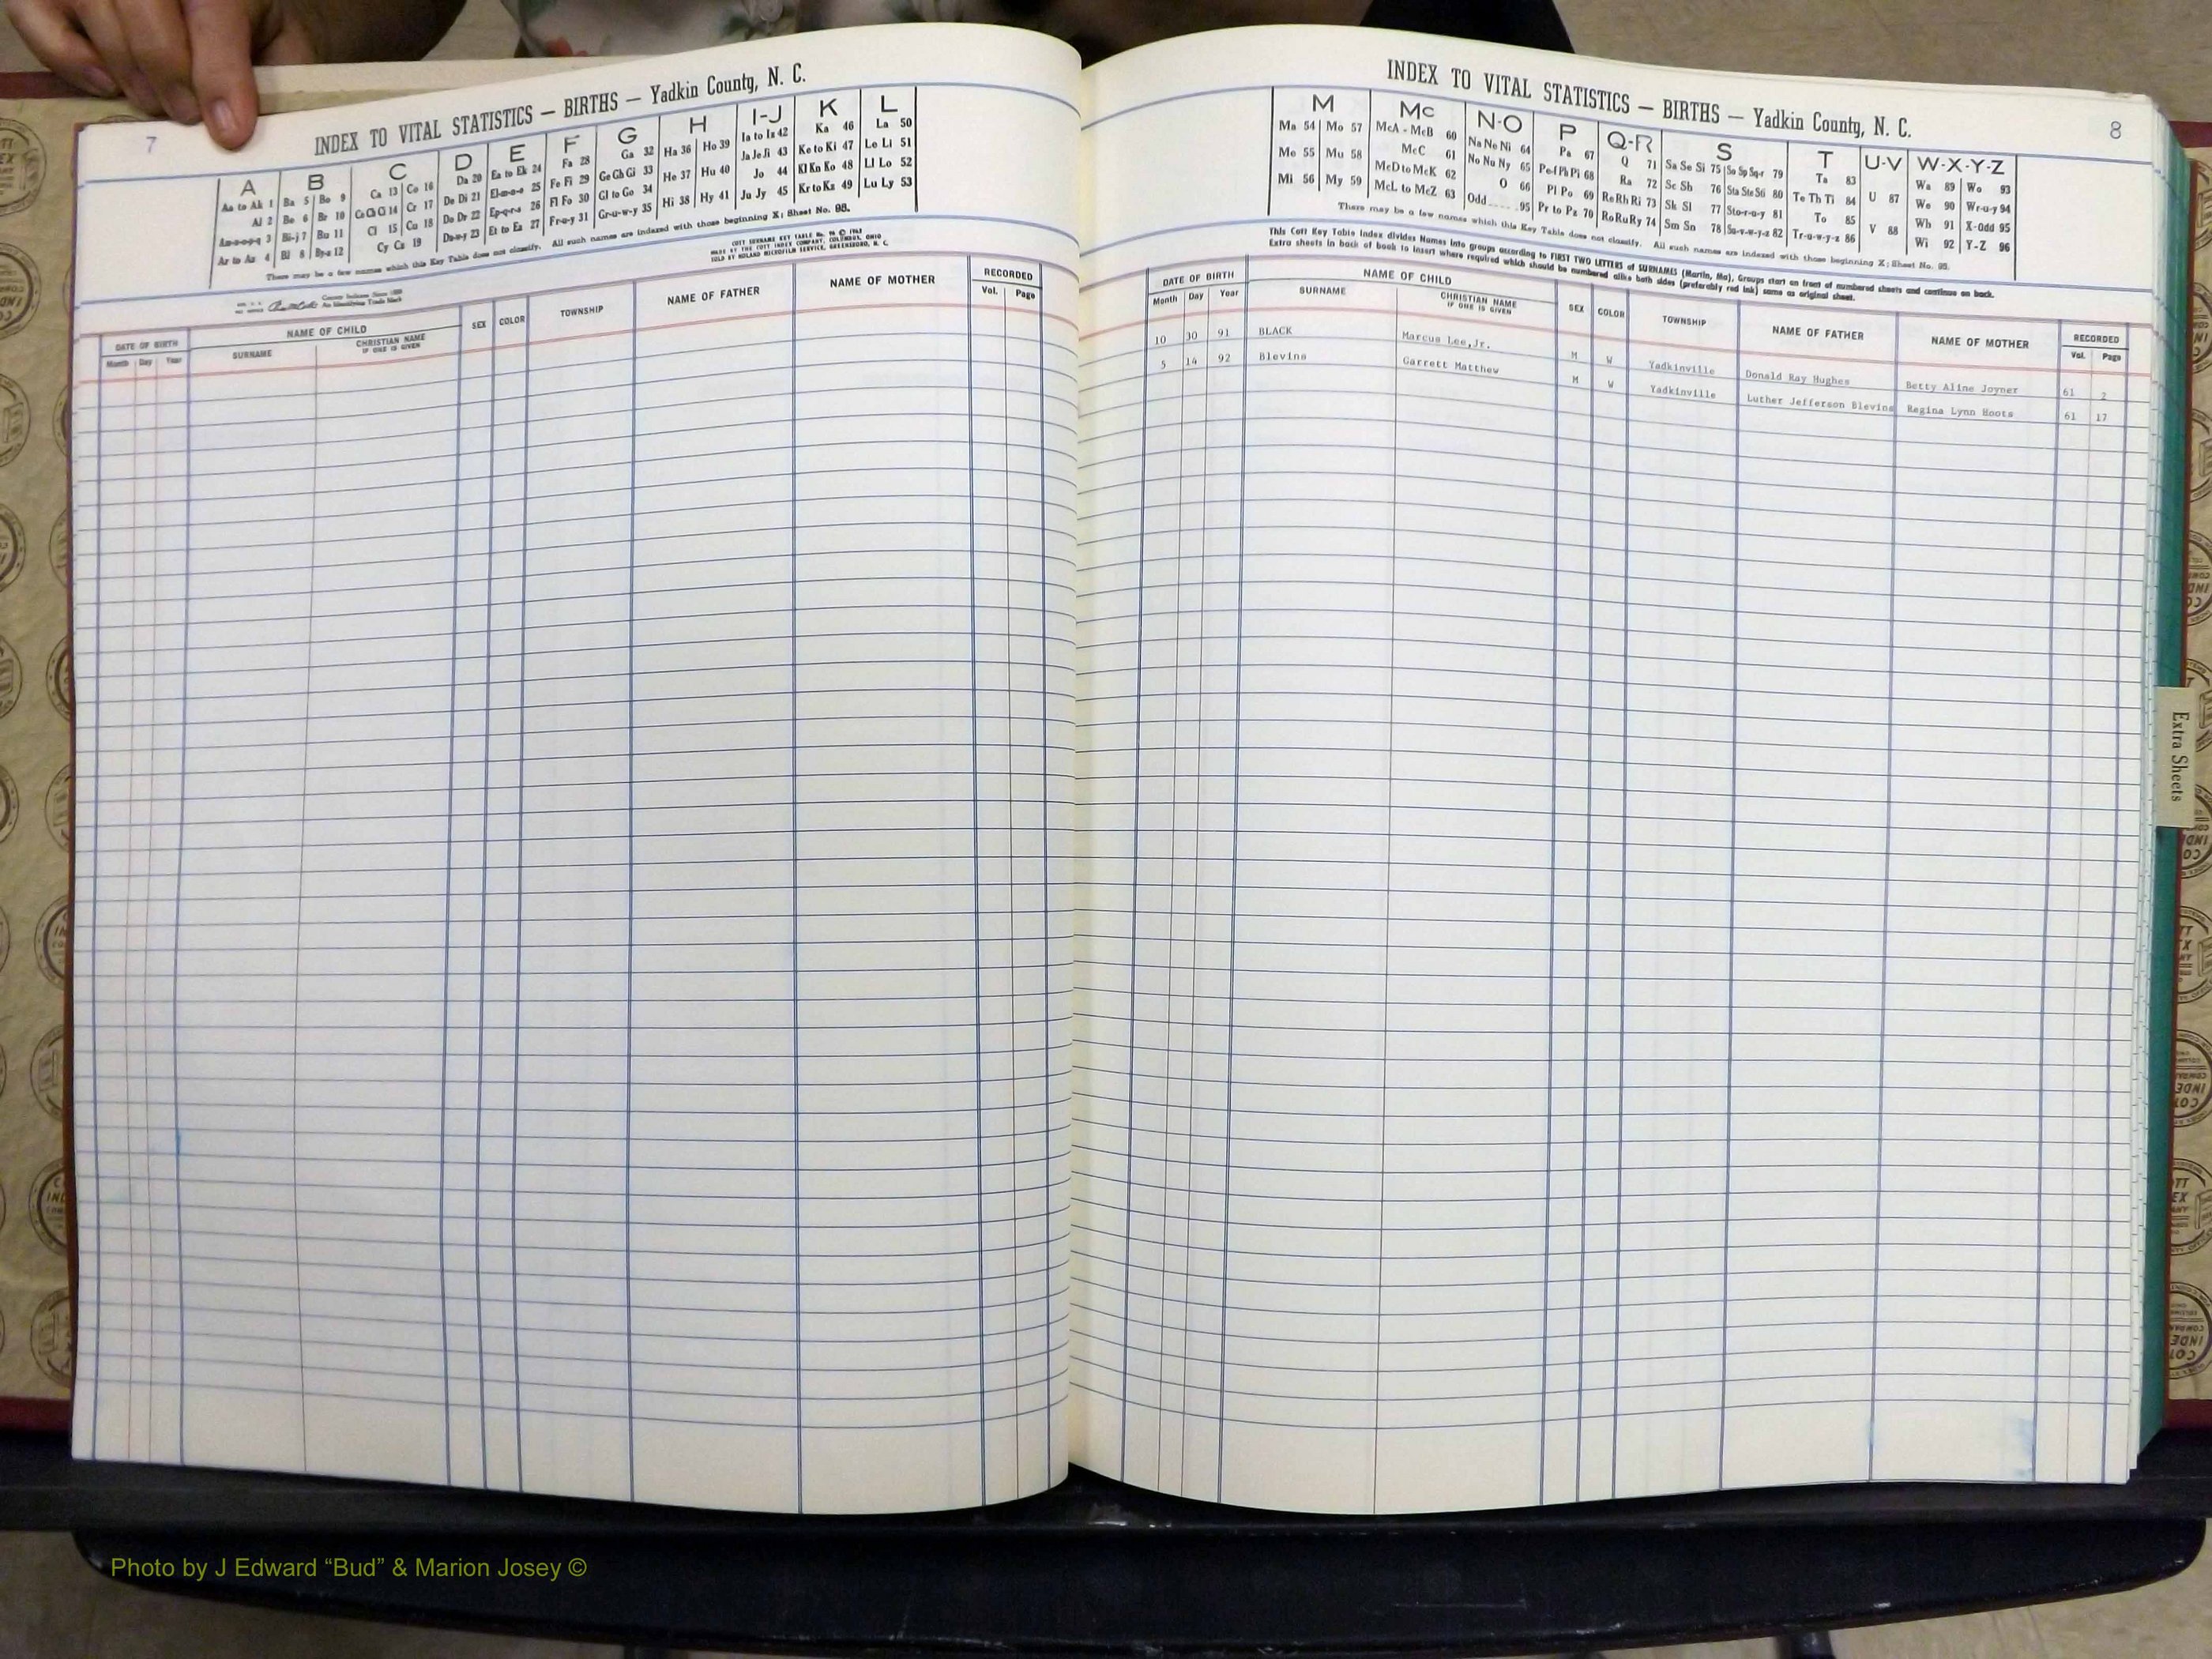 7
INDEX TO VITAL STATISTICS — BIRTHS — Yadkin County, N. C.
A B C D E F G H I-J K L
Aa to Ak 1 Ba 5 Bo 9 Ca 13 Co 16 Da 20 Ea to Ek 24 Fa 28 Ga 32 Ha 36 Ho 39 Ia to Iz 42 Ka 46 La 50
Al 2 Be 6 Br 10 Ce Ch Ci 14 Cr 17 De Di 21 El-m-n-o 25 Fe Fi 29 Ge Gh Gi 33 He 37 Hu 40 Ja Je Ji 43 Ke to Ki 47 Le Li 51
An-n-o-p-q 3 Bi-j 7 Bu 11 Cl 15 Cu 18 Do Dr 22 Ep-q-r-s 26 Fl Fo 30 Gl to Go 34 Hi 38 Hy 41 Jo 44 Kl Kn Ko 48 Ll Lo 52
Ar to Az 4 Bl 8 By-z 12 Cy Cz 19 Du-w-y 23 Et to Ez 27 Fr-u-y 31 Gr-u-w-y 35 Ju Jy 45 Kr to Kz 49 Lu Ly 53
There may be a few names which this Key Table does not classify. All such names are indexed with those beginning X; Sheet No. 95.
COTT SURNAME KEY TABLE No. 96 ©
MADE BY THE COTT INDEX COMPANY, COLUMBUS, OHIO
SOLD BY ROLAND MICROFILM SERVICE, GREENSBORO, N. C.
County Indexes Since 1888
An Identifying Trade Mark
DATE OF BIRTH NAME OF CHILD SEX COLOR TOWNSHIP NAME OF FATHER NAME OF MOTHER RECORDED
Month Day Year SURNAME CHRISTIAN NAME IF ONE IS GIVEN Vol. Page
8
INDEX TO VITAL STATISTICS — BIRTHS — Yadkin County, N. C.
M Mc N-O P Q-R S T U-V W-X-Y-Z
Ma 54 Mo 57 McA - McB 60 Na Ne Ni 64 Pa 67 Q 71 Sa Se Si 75 So Sp Sq-r 79 Ta 83 U 87 Wa 89 Wo 93
Me 55 Mu 58 McC 61 No Nu Ny 65 Pe-f Ph Pi 68 Ra 72 Sc Sh 76 Sta Ste Sti 80 Te Th Ti 84 V 88 We 90 Wr-u-y 94
Mi 56 My 59 McD to McK 62 O 66 Pl Po 69 Re Rh Ri 73 Sk Sl 77 Sto-r-u-y 81 To 85 Wh 91 X-Odd 95
McL to McZ 63 Odd 95 Pr to Pz 70 Ro Ru Ry 74 Sm Sn 78 Su-v-w-y-z 82 Tr-u-w-y-z 86 Wi 92 Y-Z 96
There may be a few names which this Key Table does not classify. All such names are indexed with those beginning X; Sheet No. 95.
This Cott Key Table Index divides Names into groups according to FIRST TWO LETTERS of SURNAMES (Martin, Ma), Groups start on front of numbered sheets and continue on back.
Extra sheets in back of book to insert where required which should be numbered alike both sides (preferably red ink) same as original sheet.
DATE OF BIRTH NAME OF CHILD SEX COLOR TOWNSHIP NAME OF FATHER NAME OF MOTHER RECORDED
Month Day Year SURNAME CHRISTIAN NAME IF ONE IS GIVEN Vol. Page
10 30 91 BLACK Marcus Lee,Jr. M W Yadkinville Donald Ray Hughes Betty Aline Joyner 61 2
5 14 92 Blevins Garrett Matthew M W Yadkinville Luther Jefferson Blevins Regina Lynn Hoots 61 17
Extra Sheets
Photo by J Edward “Bud” & Marion Josey ©